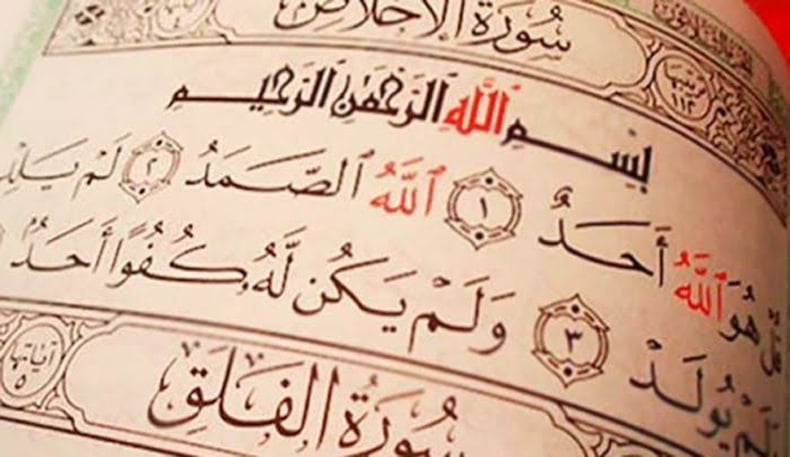 سُورَةُ الْإِخْلَاصِ
تَرْتِيبُهَا ١١٢
بِسْمِ ٱللَّهِ ٱلرَّحْمَٰنِ ٱلرَّحِيمِ
هُوَ ٱللَّهُ أَحَدٌ ١ ٱللَّهُ ٱلصَّمَدُ ٢ لَمْ يَلِدْ
يُولَدْ ٣ وَلَمْ يَكُن لَّهُۥ كُفُوًا أَحَدٌ
سُورَةُ الْفَلَقِ
آيَاتُهَا ٥